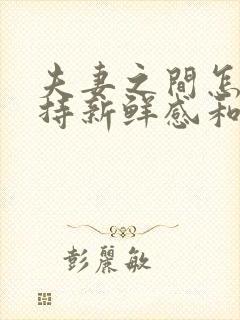 夫妻之間怎
持新鮮感和
彭麗敏